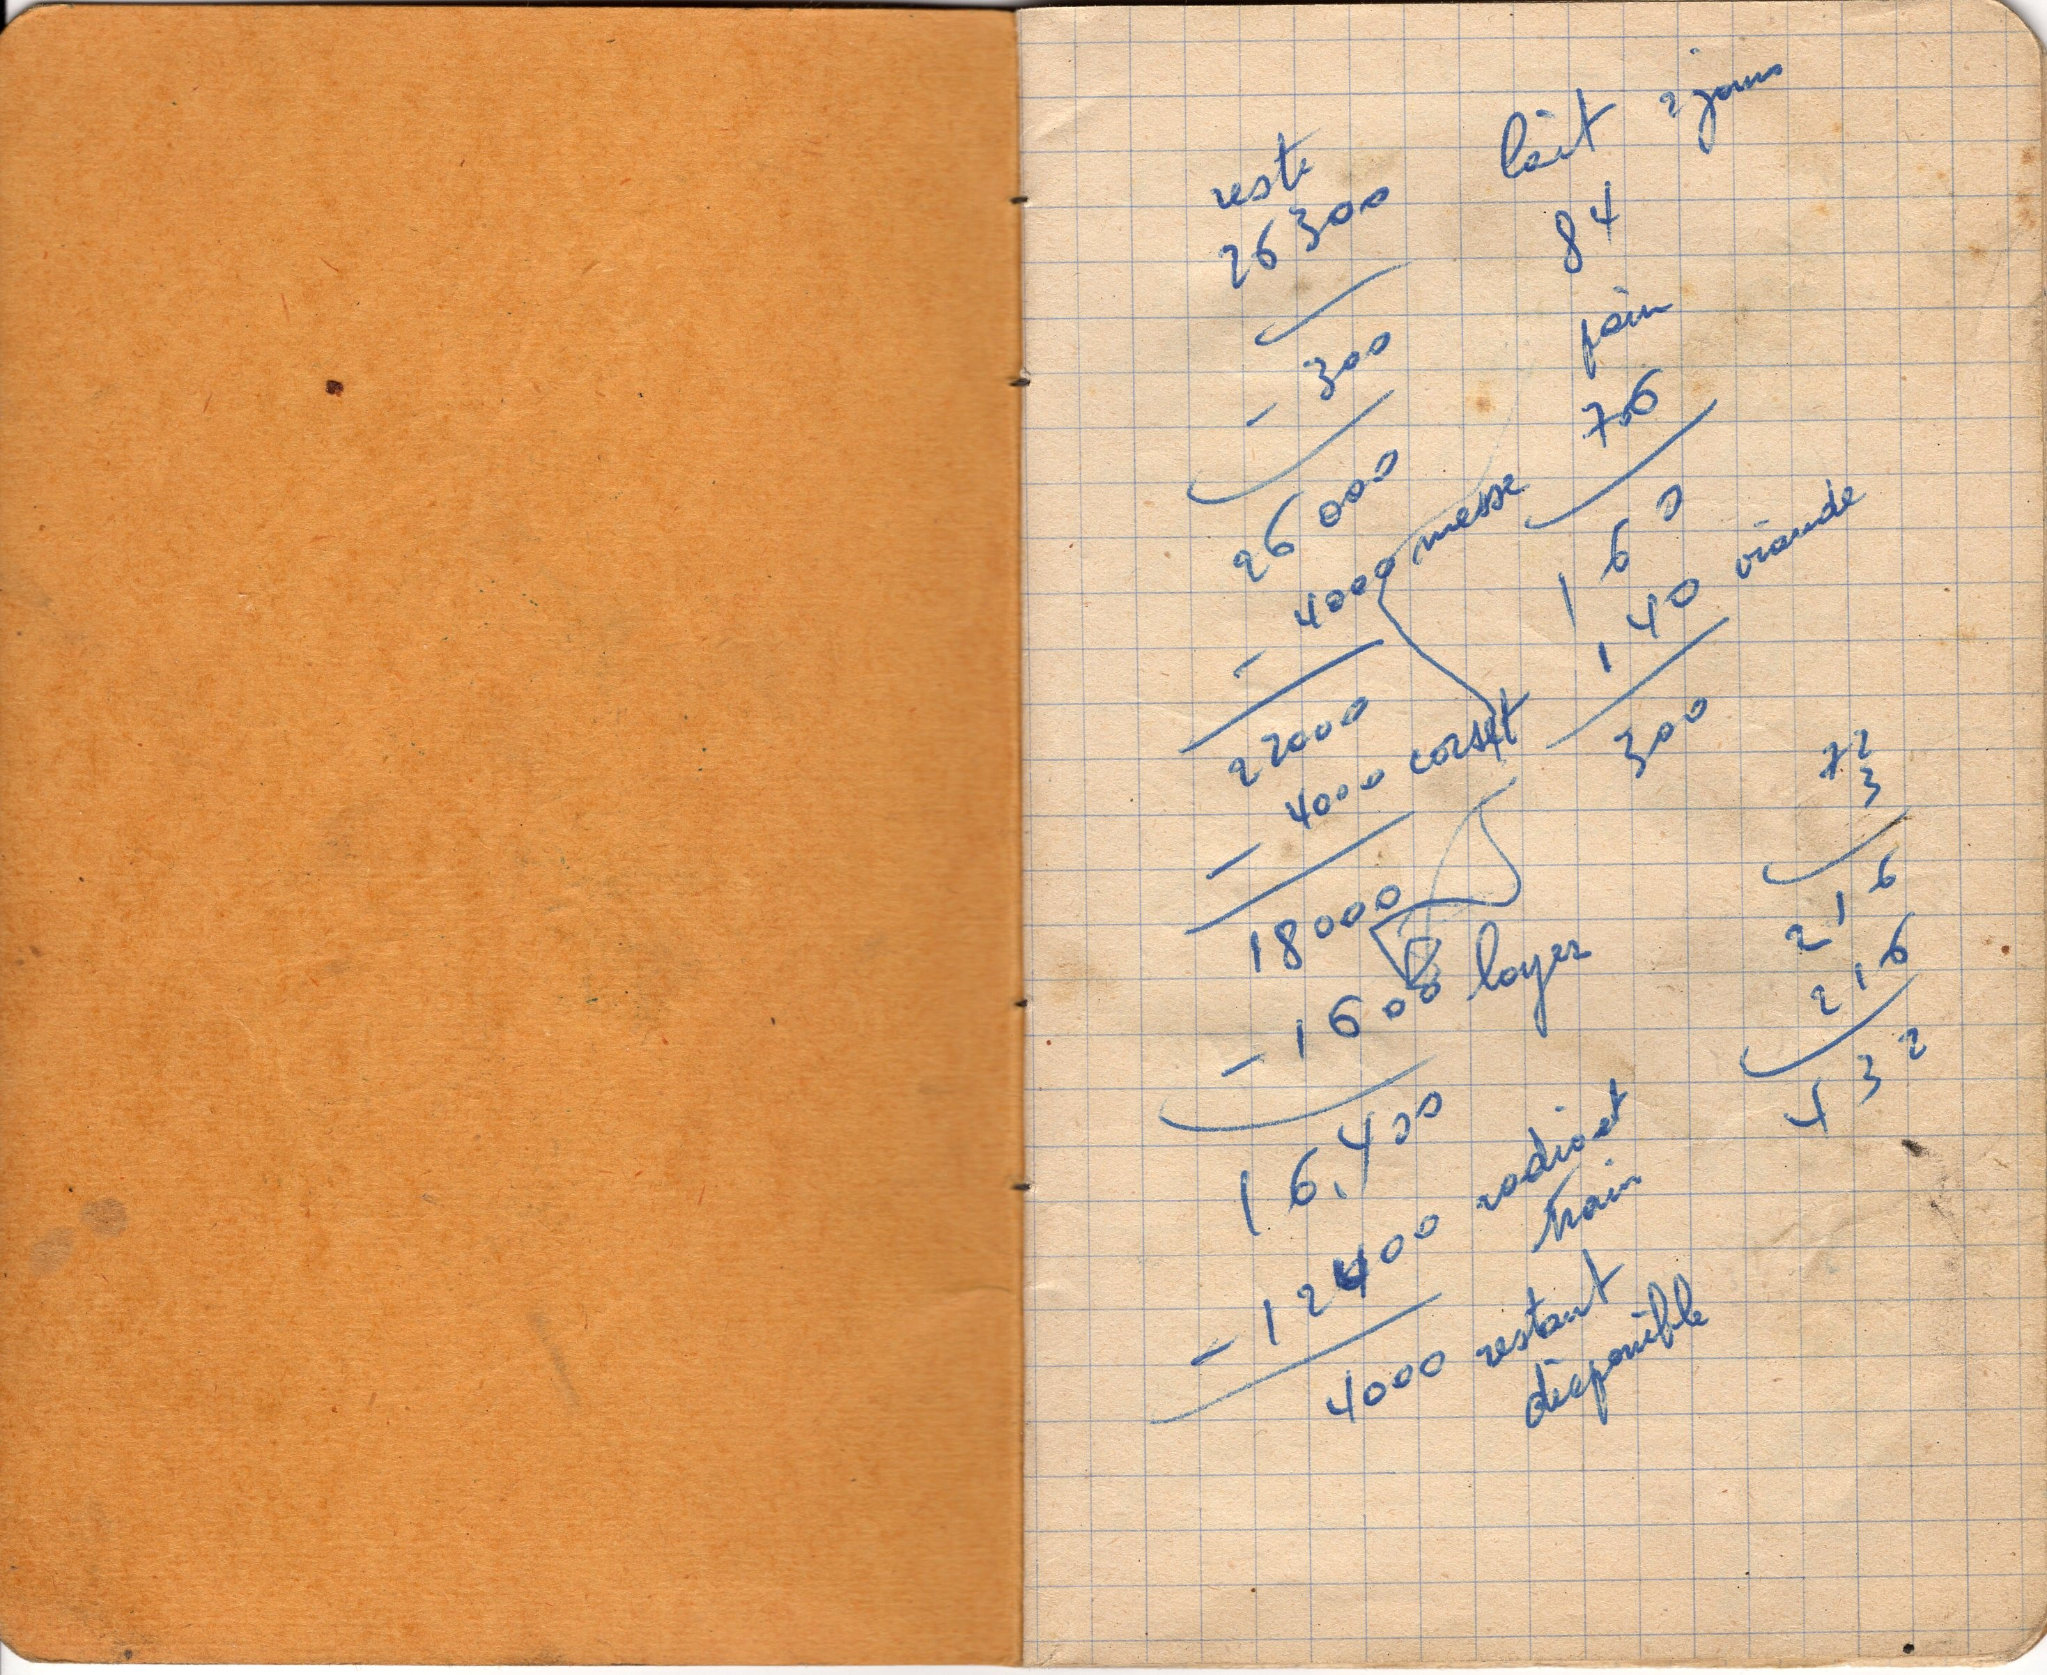 reste
26300
- 300
26000
- 4000 messe
22000
- 4000 corset
18000
- 1600 loyer
16.400
- 12400 radio et
train
4000 restant
disponible
lait 2 jours
84
pain
76
160
140 viande
300
72
3
216
216
432